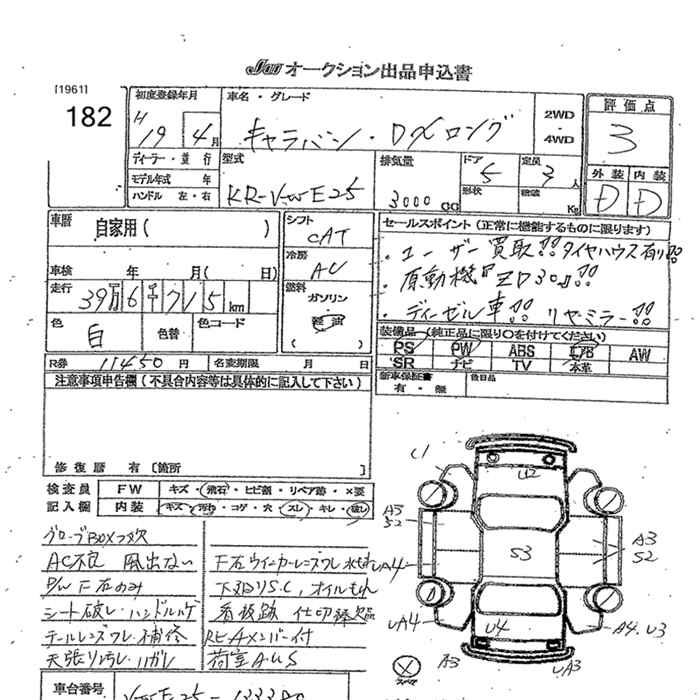 JAA オークション出品申込書
[1961]
182
初度登録年月
H 19 4月
車名・グレード
キャラバン・DXロング
2WD
4WD
評価点
3
ディーラー・並行
モデル年式 年
ハンドル 左・右
型式
KR-VWE25
排気量
3000 CC
ドア
5
形状
定員
3 人
積載
Kg
外装 内装
D D
車歴
自家用( )
シフト
CAT
冷房
AC
車検 年 月( 日)
走行
39万6千715 km
燃料
ガソリン
軽油
( )
色
白
色替
色コード
セールスポイント(正常に機能するものに限ります)
・ユーザー買取!! タイヤハウス有り!!
・原動機『ZD30』!!
・ディーゼル車!! リヤミラー!!
装備品(純正品に限り○を付けてください)
PS PW ABS エアB AW
SR ナビ TV 本革
新車保証書
有・無
後日品
R券 11450 円
名変期限 月 日
注意事項申告欄(不具合内容等は具体的に記入して下さい)
修復歴 有 [箇所 ]
検査員
記入欄
FW キズ・飛石・ヒビ割・リペア跡・×要
内装 キズ・汚れ・コゲ・穴・スレ・キレ・破レ
グローブBOXフタ欠
AC不良 風出ない
P/W F右のみ
シート破レ・ハンドルハゲ
テールレンズワレ・補修
天張り汚レ ハガレ
F右ウインカーレンズワレ 水もれ
下廻りS.C,オイルもれ
看板跡 仕切棒欠品
Rヒーター付
荷室AUS
車台番号
VWE25-133380
U1
U2
A3
S2
S3
UA4
A3
S2
UA4
U4
A4.U3
A3
UA3
スペア